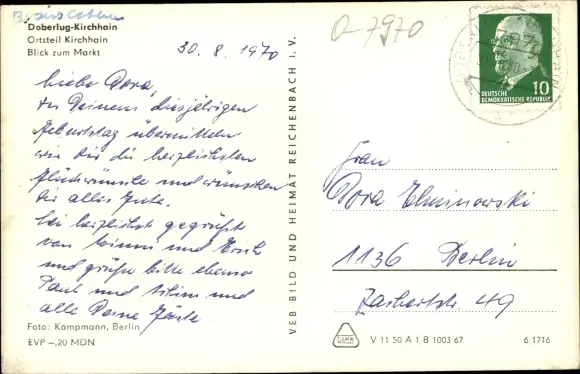 Bezirk Cottbus
Doberlug-Kirchhain
Ortsteil Kirchhain
Blick zum Markt
30. 8. 1970
O-7970
Liebe Dora,
zu Deinem diesjährigen
Geburtstag übermitteln
wir dir die herzlichsten
Glückwünsche und wünschen
dir alles Gute.
Sei herzlichst gegrüßt
von und Erich
und grüße bitte ebenso
Paul und und
alle Deine Gäste
Foto: Kampmann, Berlin
EVP –,20 MDN
VEB BILD UND HEIMAT REICHENBACH i. V.
10
DEUTSCHE
DEMOKRATISCHE REPUBLIK
Frau
Dora
1136 Berlin
49
V 11 50 A 1 B 1003 67
6.1716